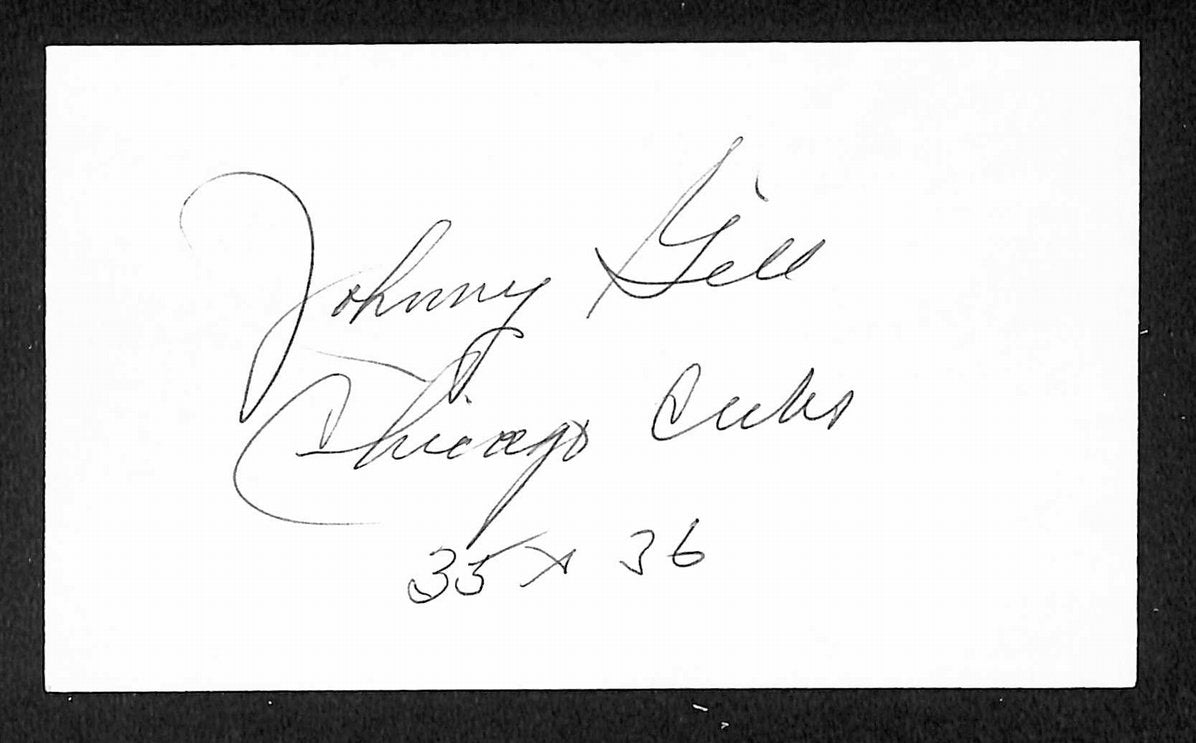 Johnny Gill
Chicago Cubs
35 + 36